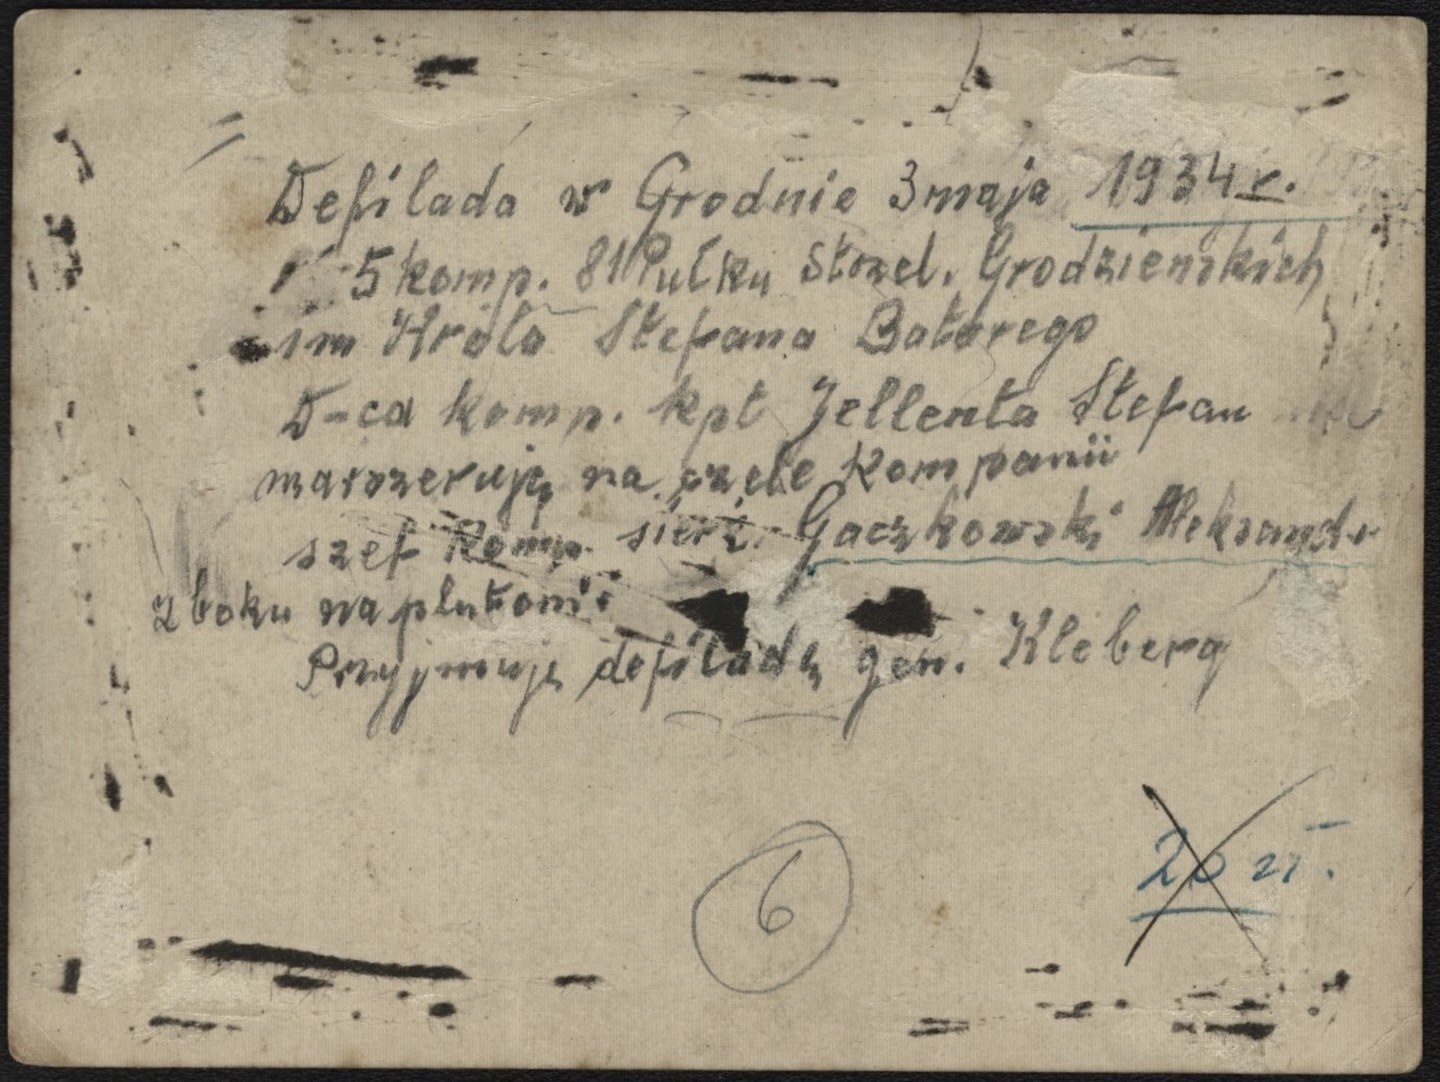 Defilada w Grodnie 3 maja 1934 r.
5 komp. 81 Pułku Strzel. Grodzieńskich
im Króla Stefana Batorego
D-ca komp. kpt Jellenta Stefan
maszerują na czele kompanii
szef komp. sierż. Gaczkowski Aleksandr
z boku na plutonie
Przyjmuje defiladę gen. Kleberg
6
20 zł.